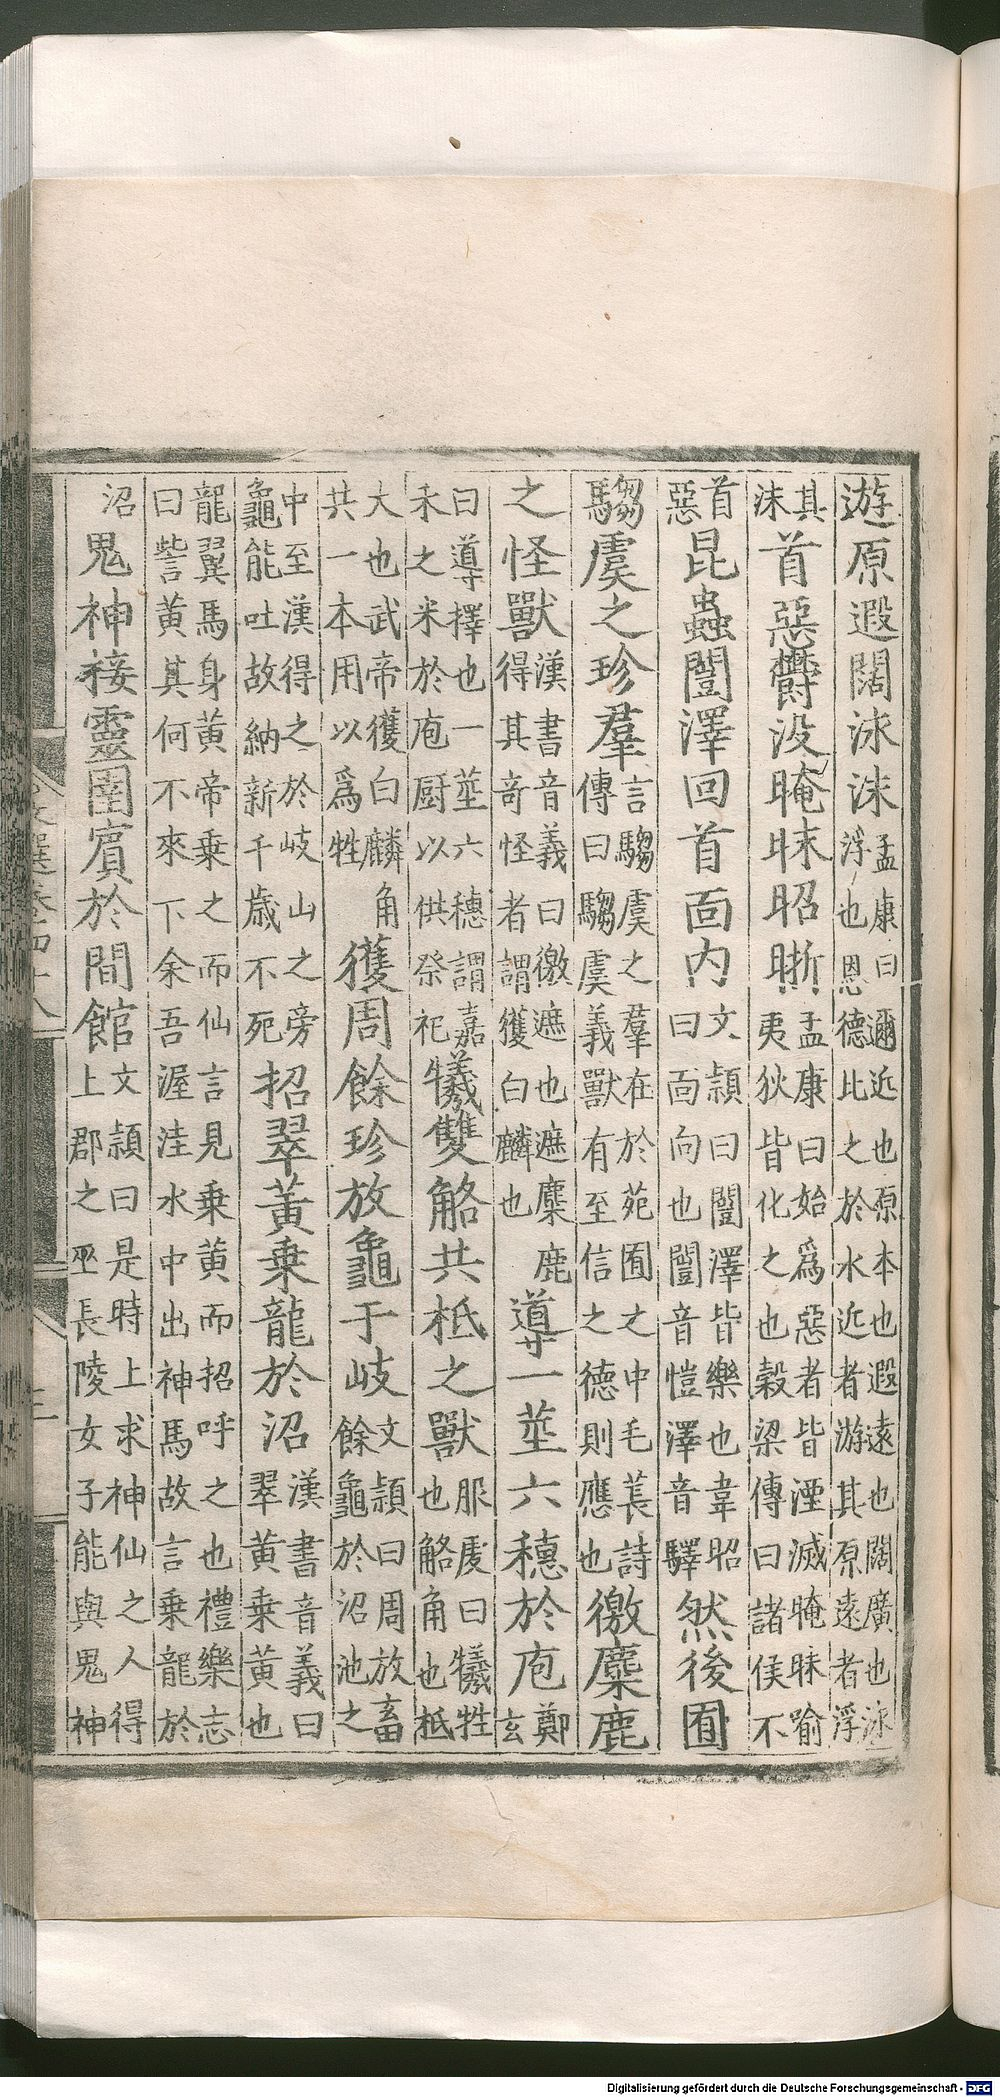 遊原遐闊泳沫孟康曰邇近也原本也遐遠也闊廣也泳浮也恩德比之於水近者游其原遠者浮
其沫首惡鬱没晻昧昭晰孟康曰始爲惡者皆湮滅晻昧喻夷狄皆化之也穀梁傳曰諸侯不
首惡昆蟲闓澤回首面内文頴曰闓澤皆樂也韋昭曰面向也闓音愷澤音驛然後囿
騶虞之珍羣言騶虞之羣在於苑囿之中毛萇詩傳曰騶虞義獸有至信之德則應也徼麋鹿
之怪獸漢書音義曰徼遮也遮麋鹿得其奇怪者謂獲白麟也導一莖六穗於庖鄭玄
曰導擇也一莖六穗謂嘉禾之米於庖厨以供祭祀犧雙觡共柢之獸服虔曰犧牲也觡角也柢
大也武帝獲白麟角共一本用以爲牲獲周餘珍放龜于岐文頴曰周放畜餘龜於沼池之
中至漢得之於岐山之旁龜能吐故納新千歳不死招翠黃乗龍於沼漢書音義曰翠黃乗黃也
龍翼馬身黃帝乗之而仙言見乗黃而招呼之也禮樂志曰訾黃其何不來下余吾渥洼水中出神馬故言乗龍於
沼鬼神接靈圉賓於間館文頴曰是時上求神仙之人得上郡之巫長陵女子能與鬼神
文選卷四十八
Digitalisierung gefördert durch die Deutsche Forschungsgemeinschaft - DFG